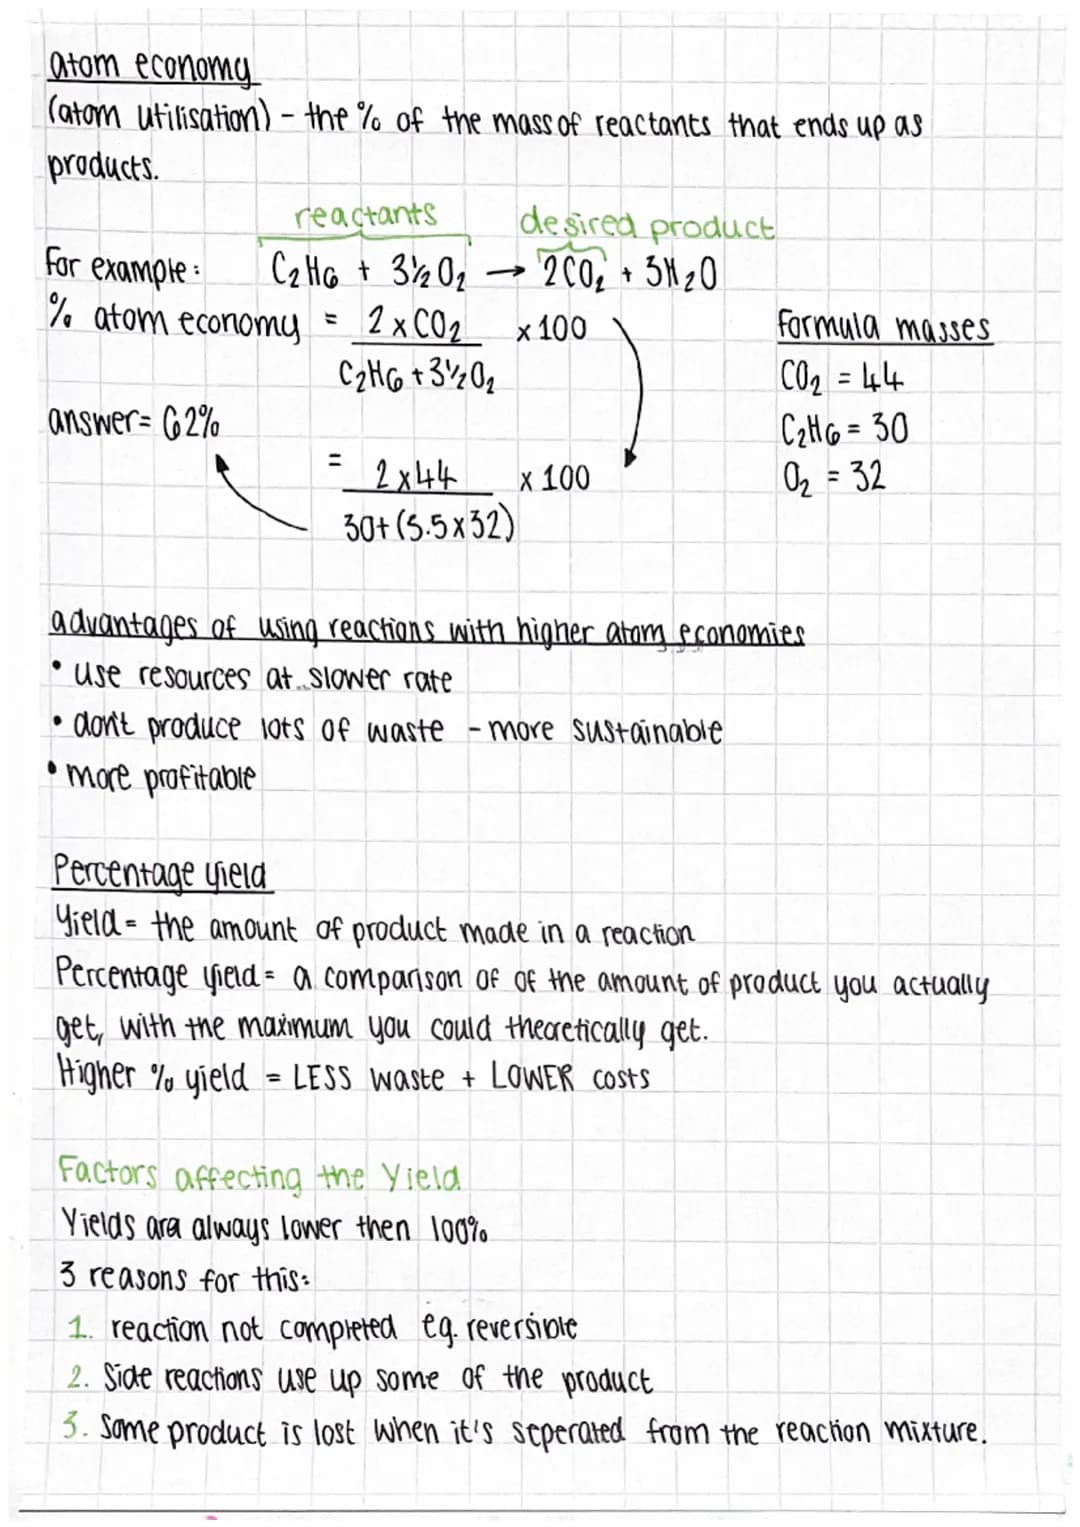 atom economy
(atom utilisation) - the % of the mass of reactants that ends up as
products.
reactants desired product
For example: C₂H6 + 3½ O₂ → 2CO₂ + 3H₂O
% atom economy = 2 x CO₂ x 100
C₂H6 + 3½ O₂
Formula masses
CO₂ = 44
C₂H6 = 30
O₂ = 32
answer = 62%
= 2 x 44 x 100
30 + (3.5 x 32)
advantages of using reactions with higher atom economies
• use resources at slower rate
• don't produce lots of waste - more sustainable
• more profitable
Percentage yield
Yield = the amount of product made in a reaction
Percentage yield = a comparison of of the amount of product you actually
get, with the maximum you could theoretically get.
Higher % yield = LESS waste + LOWER costs
Factors affecting the Yield
Yields are always lower then 100%
3 reasons for this:
1. reaction not completed eg. reversible
2. Side reactions use up some of the product
3. Some product is lost when it's seperated from the reaction mixture.